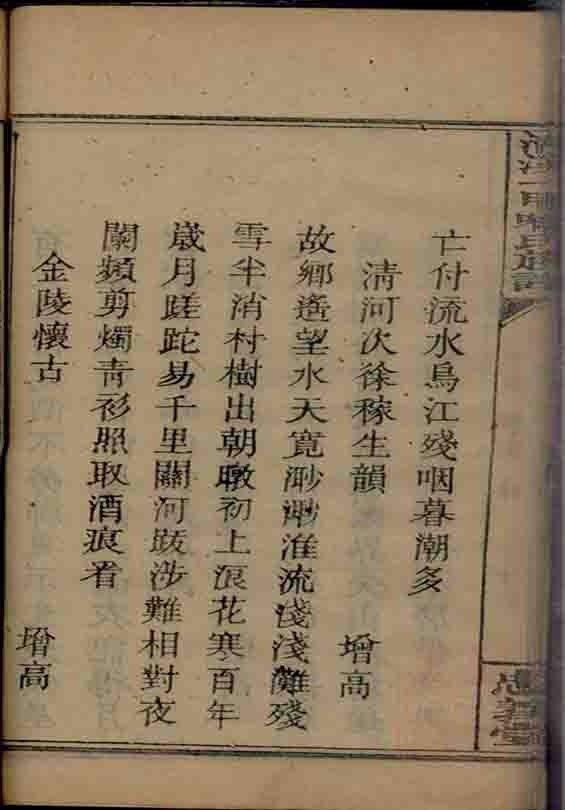 氏族譜
忠義堂
亡付流水烏江殘咽暮潮多
清河次徐稼生韻 增高
故鄉遙望水天寬渺渺淮流淺淺灘殘
雪半消村樹出朝暾初上浪花寒百年
歲月蹉跎易千里關河跋涉難相對夜
闌頻剪燭青衫照取酒痕看
金陵懷古 增高